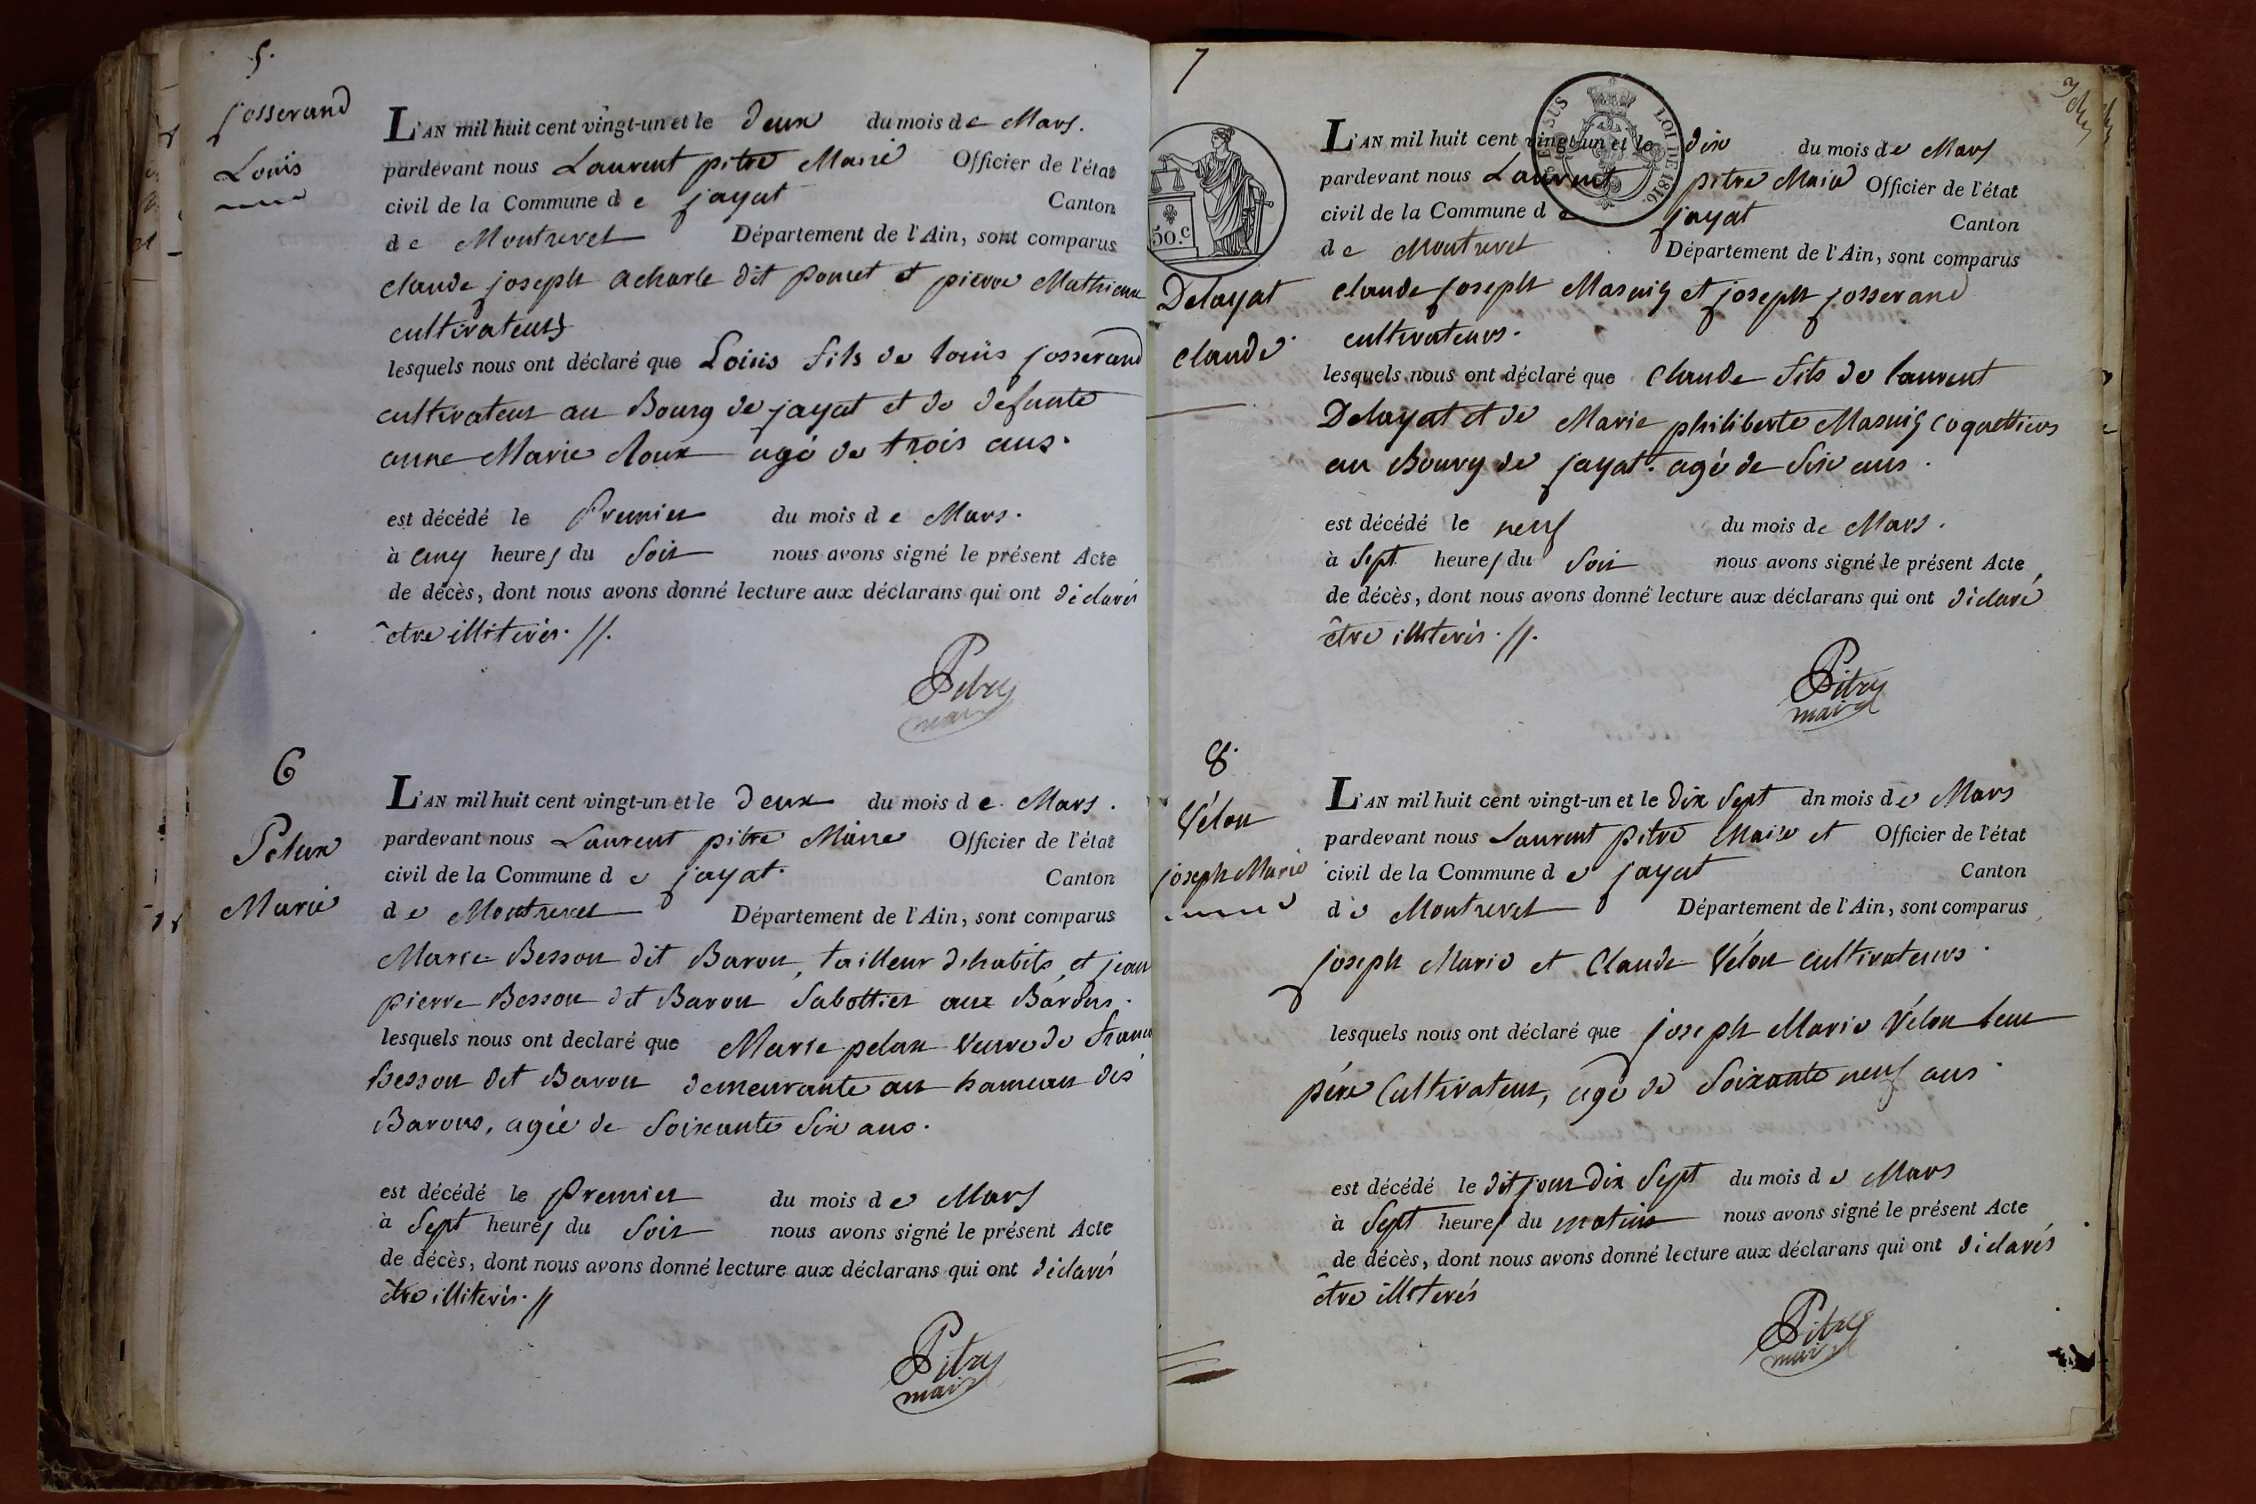 5.
Josserand
Louis
L'AN mil huit cent vingt-un et le deux du mois de Mars.
pardevant nous Laurent pitre Maire Officier de l'état
civil de la Commune de jayat Canton
de Montrevel Département de l'Ain, sont comparus
claude joseph acharle dit poncet et pierre Mathieux
cultivateurs
lesquels nous ont déclaré que Loüis fils de loüis josserand
cultivateur au Bourg de jayat et de defunte
anne Marie cloux agé de trois ans.
est décédé le Premier du mois de Mars.
à cinq heures du Soir nous avons signé le présent Acte
de décès, dont nous avons donné lecture aux déclarans qui ont déclarés
être illiterés. //.
Pitre
maire
6
Pelux
Marie
L'AN mil huit cent vingt-un et le deux du mois de Mars.
pardevant nous Laurent pitre Maire Officier de l'état
civil de la Commune de jayat. Canton
de Montrevel Département de l'Ain, sont comparus
Marie Besson dit Baron, tailleur d'habits, et jean
pierre Besson dit Baron Sabottier aux Barons.
lesquels nous ont declaré que Marie pelux veuve de
Besson dit Baron demeurante au hameau des
Barons, agée de Soixante Six ans.
est décédé le Premier du mois de Mars
à Sept heures du Soir nous avons signé le présent Acte
de décès, dont nous avons donné lecture aux déclarans qui ont déclarés
être illiterés. //
Pitre
maire
7
50.c
LOI DE 1816.
Delayat
claude
L'AN mil huit cent vingt-un et le dix du mois de Mars
pardevant nous Laurent pitre Maire Officier de l'état
civil de la Commune de jayat Canton
de Montrevel Département de l'Ain, sont comparus
claude joseph Masuiy et joseph josserand
cultivateurs.
lesquels nous ont déclaré que Claude fils de laurent
Delayat et de Marie philiberte Masuiy coquettiers
au Bourg de jayat. agé de Six ans.
est décédé le neuf du mois de Mars.
à Sept heures du Soir nous avons signé le présent Acte
de décès, dont nous avons donné lecture aux déclarans qui ont déclaré
être illiterés. //.
Pitre
maire
8.
Vélon
joseph Marie
L'AN mil huit cent vingt-un et le dix Sept dn mois de Mars
pardevant nous Laurent pitre Maire et Officier de l'état
civil de la Commune de jayat Canton
de Montrevel Département de l'Ain, sont comparus
joseph Marie et Claude Vélon cultivateurs.
lesquels nous ont déclaré que joseph Marie Vélon leur
père Cultivateur, agé de Soixante neuf ans.
est décédé le dit jour dix Sept du mois de Mars
à Sept heures du matin nous avons signé le présent Acte
de décès, dont nous avons donné lecture aux déclarans qui ont déclarés
être illiterés
Pitre
maire